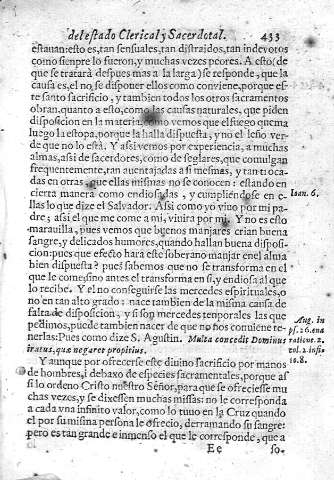 del estado Clerical y Sacerdotal. 433
estauan: esto es, tan sensuales, tan distraidos, tan indeuotos
como siempre lo fueron, y muchas vezes peores. A esto (de
que se tratarà despues mas a la larga) se responde, que la
causa es, el no se disponer ellos como conviene, porque es-
te santo sacrificio, y tambien todos los otros sacramentos
obran, quanto a esto, como las causas naturales, que piden
disposicion en la materia, como vemos que el fuego quema
luego la estopa, porque la halla dispuesta, y no el leño ver-
de que no lo està. Y assi vemos por experiencia, a muchas
almas, assi de sacerdotes, como de seglares, que comulgan
frequentemente, tan auentajadas a si mesmas, y tan troca-
das en otras, que ellas mismas no se conocen: estando en
cierta manera como endiosadas, y cumpliendose en e-
llas lo que dize el Salvador. Assi como yo viuo por mi pa-
dre; assi el que me come a mi, viuira por mi. Y no es esto
marauilla, pues vemos que buenos manjares crian buena
sangre, y delicados humores, quando hallan buena disposi-
cion: pues que efecto harà este soberano manjar en el alma
bien dispuesta? pues sabemos que no se transforma en el
que le come, sino antes el transforma en si, y endiosa al que
lo recibe. Y el no conseguirse las mercedes espirituales, o
no en tan alto grado: nace tambien de la misma causa de
falta de disposicion, y si son mercedes temporales las que
pedimos, puede tambien nacer de que no nos conuiene te-
nerlas: Pues como dize S. Agustin. Multa concedit Dominus
iratus, quæ negaret propitius.
Y aunque por ofrecerse este diuino sacrificio por manos
de hombres, i debaxo de especies sacramentales, porque as
si lo ordeno Cristo nuestro Señor, para que se ofreciesse mu
chas vezes, y se dixessen muchas missas: no le corresponda
a cada vna infinito valor, como lo tuuo en la Cruz quando
el por su misma persona le ofrecio, derramando su sangre:
pero es tan grande e inmenso el que le corresponde, que a
Ee so-
Ioan. 6.
Aug. in
ps. 26.